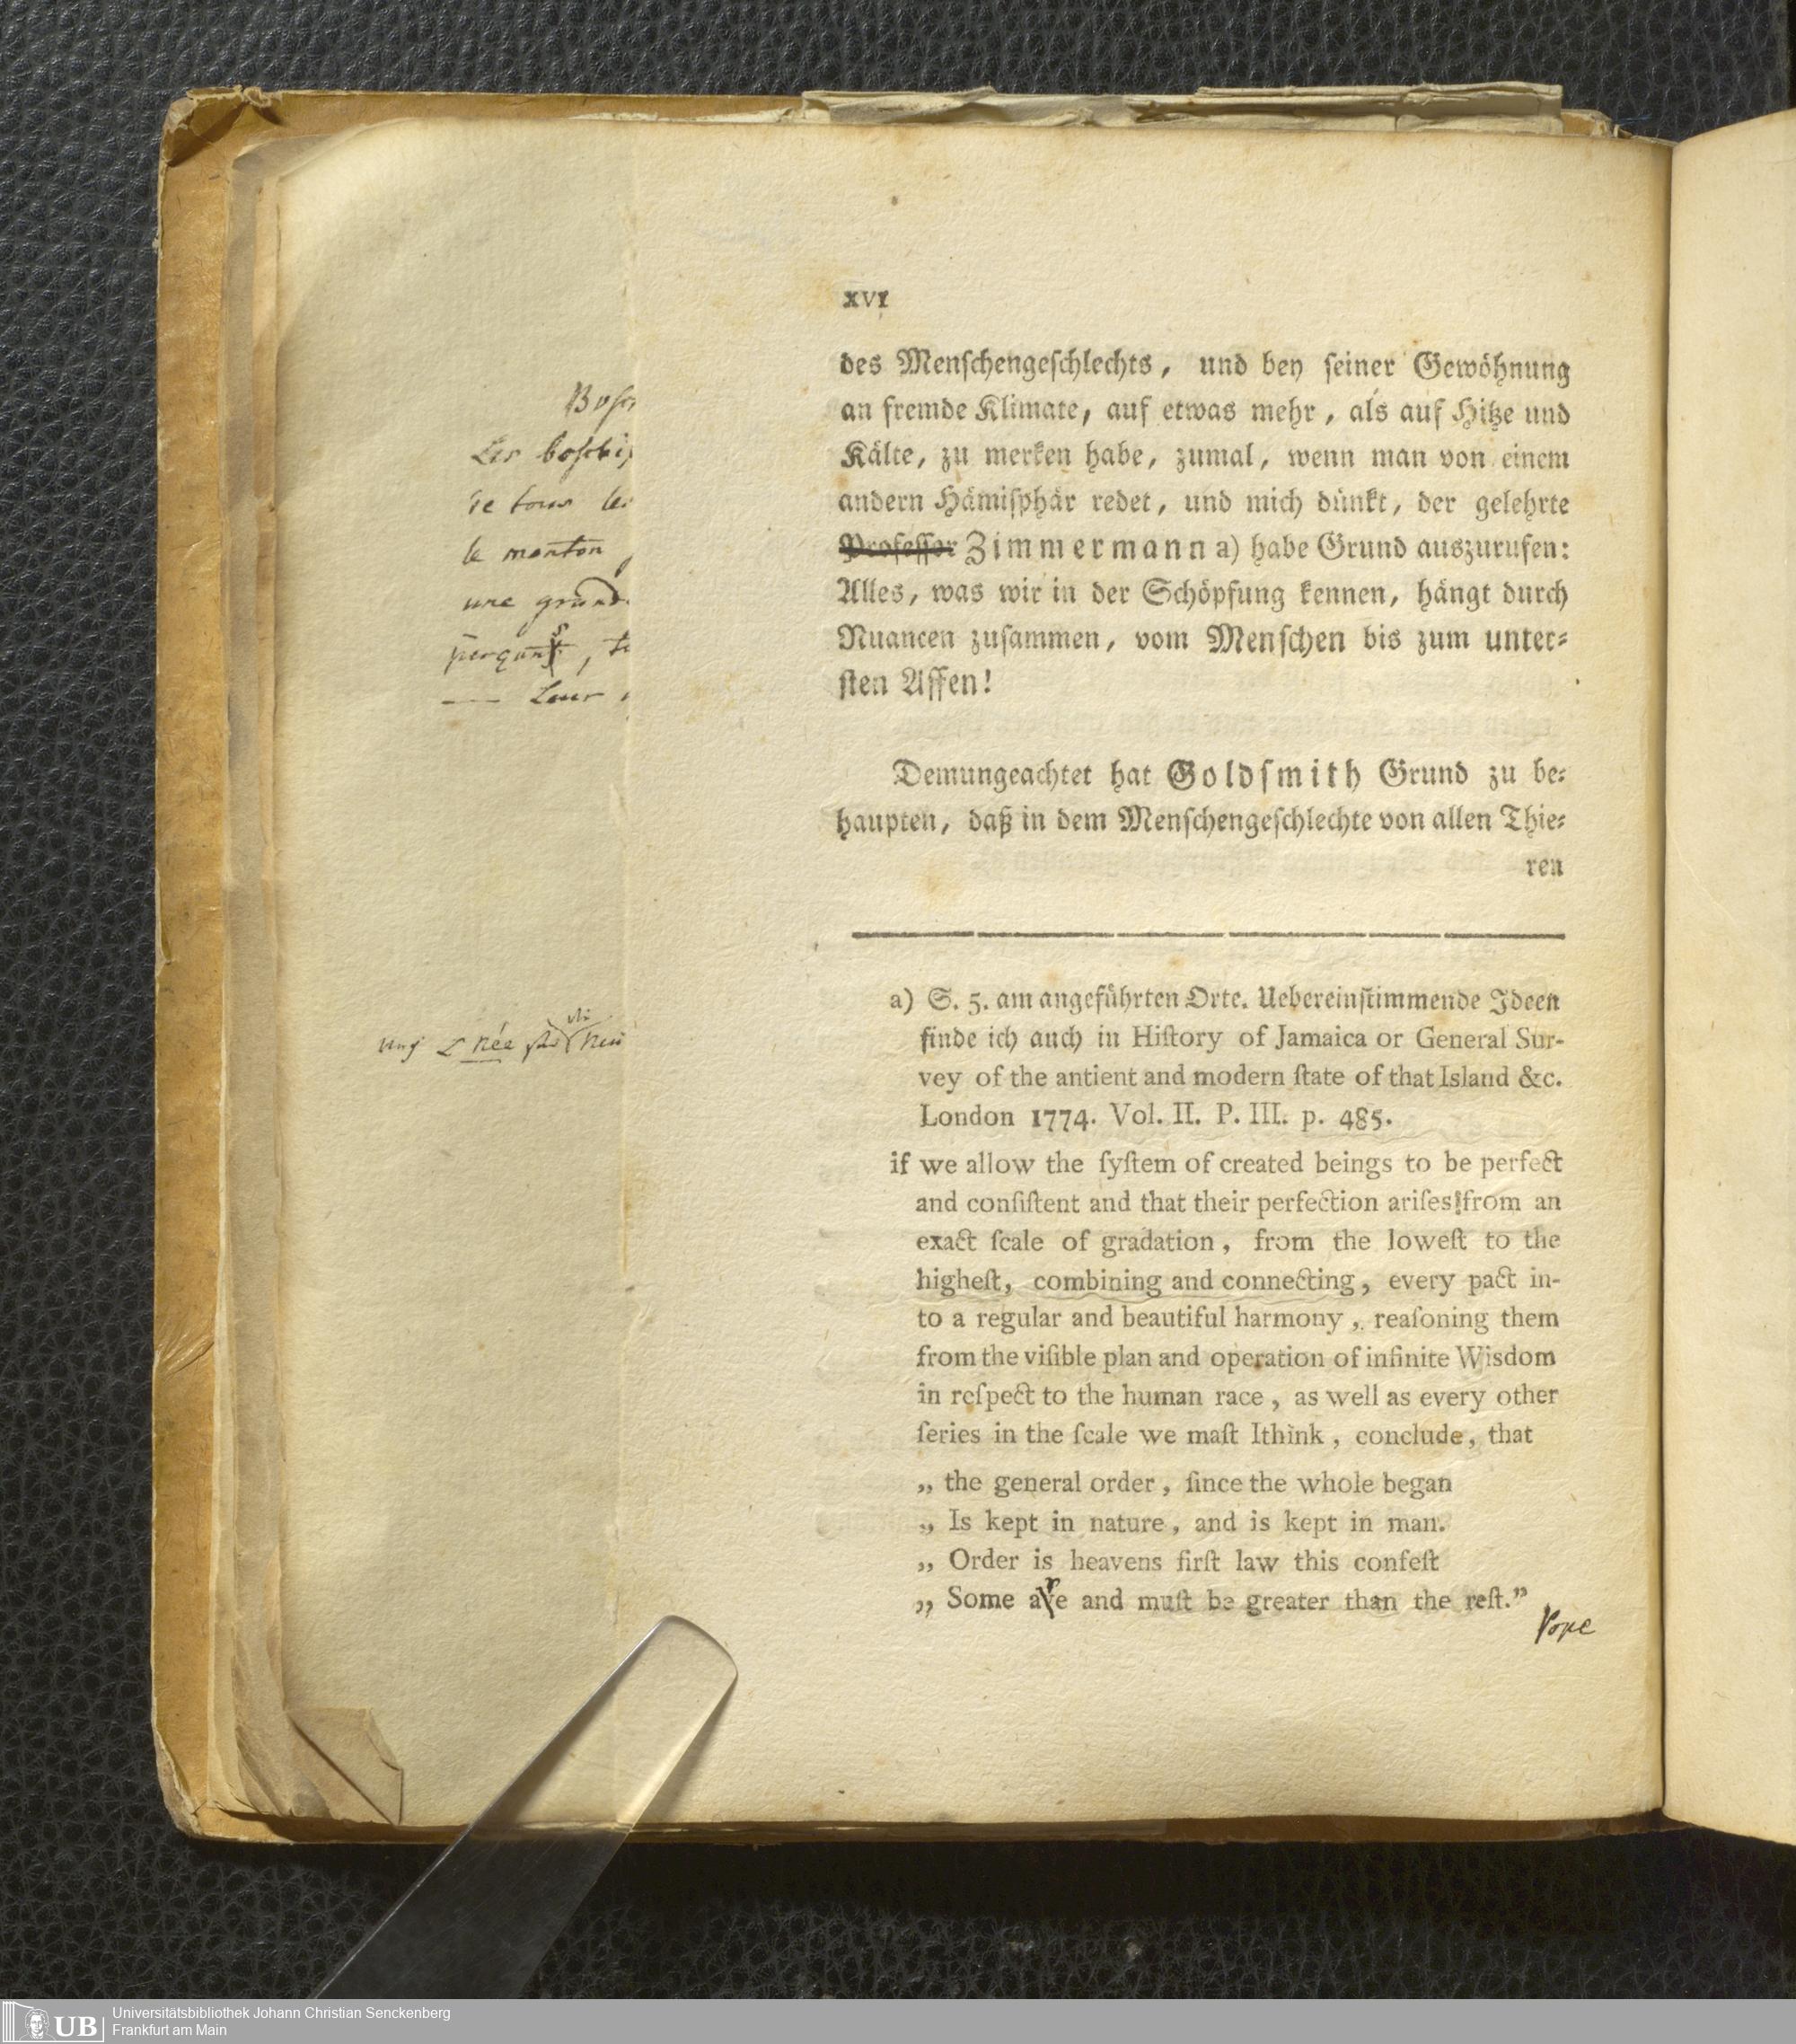 xvi
des Menſchengeſchlechts, und bey ſeiner Gewöhnung
an fremde Klimate, auf etwas mehr, als auf Hitze und
Kälte, zu merken habe, zumal, wenn man von einem
andern Hämiſphär redet, und mich dünkt, der gelehrte
Profeſſor Zimmermann a) habe Grund auszurufen:
Alles, was wir in der Schöpfung kennen, hängt durch
Nuancen zuſammen, vom Menſchen bis zum unter⸗
ſten Affen!
Demungeachtet hat Goldſmith Grund zu be⸗
haupten, daß in dem Menſchengeſchlechte von allen Thie⸗
ren
a) S. 5. am angeführten Orte. Uebereinſtimmende Ideen
finde ich auch in Hiſtory of Jamaica or General Sur-
vey of the antient and modern ſtate of that Island &c.
London 1774. Vol. II. P. III. p. 485.
if we allow the ſyſtem of created beings to be perfect
and conſiſtent and that their perfection ariſes from an
exact ſcale of gradation, from the loweſt to the
higheſt, combining and connecting, every pact in-
to a regular and beautiful harmony, reaſoning them
from the viſible plan and operation of infinite Wisdom
in reſpect to the human race, as well as every other
ſeries in the ſcale we maſt Ithink, conclude, that
„ the general order, ſince the whole began
„ Is kept in nature, and is kept in man.
„ Order is heavens firſt law this confeſt
„ Some are and muſt be greater than the reſt.”
Pope
Les
tous
le menton
une
Leur
née
UB
Universitätsbibliothek Johann Christian Senckenberg
Frankfurt am Main